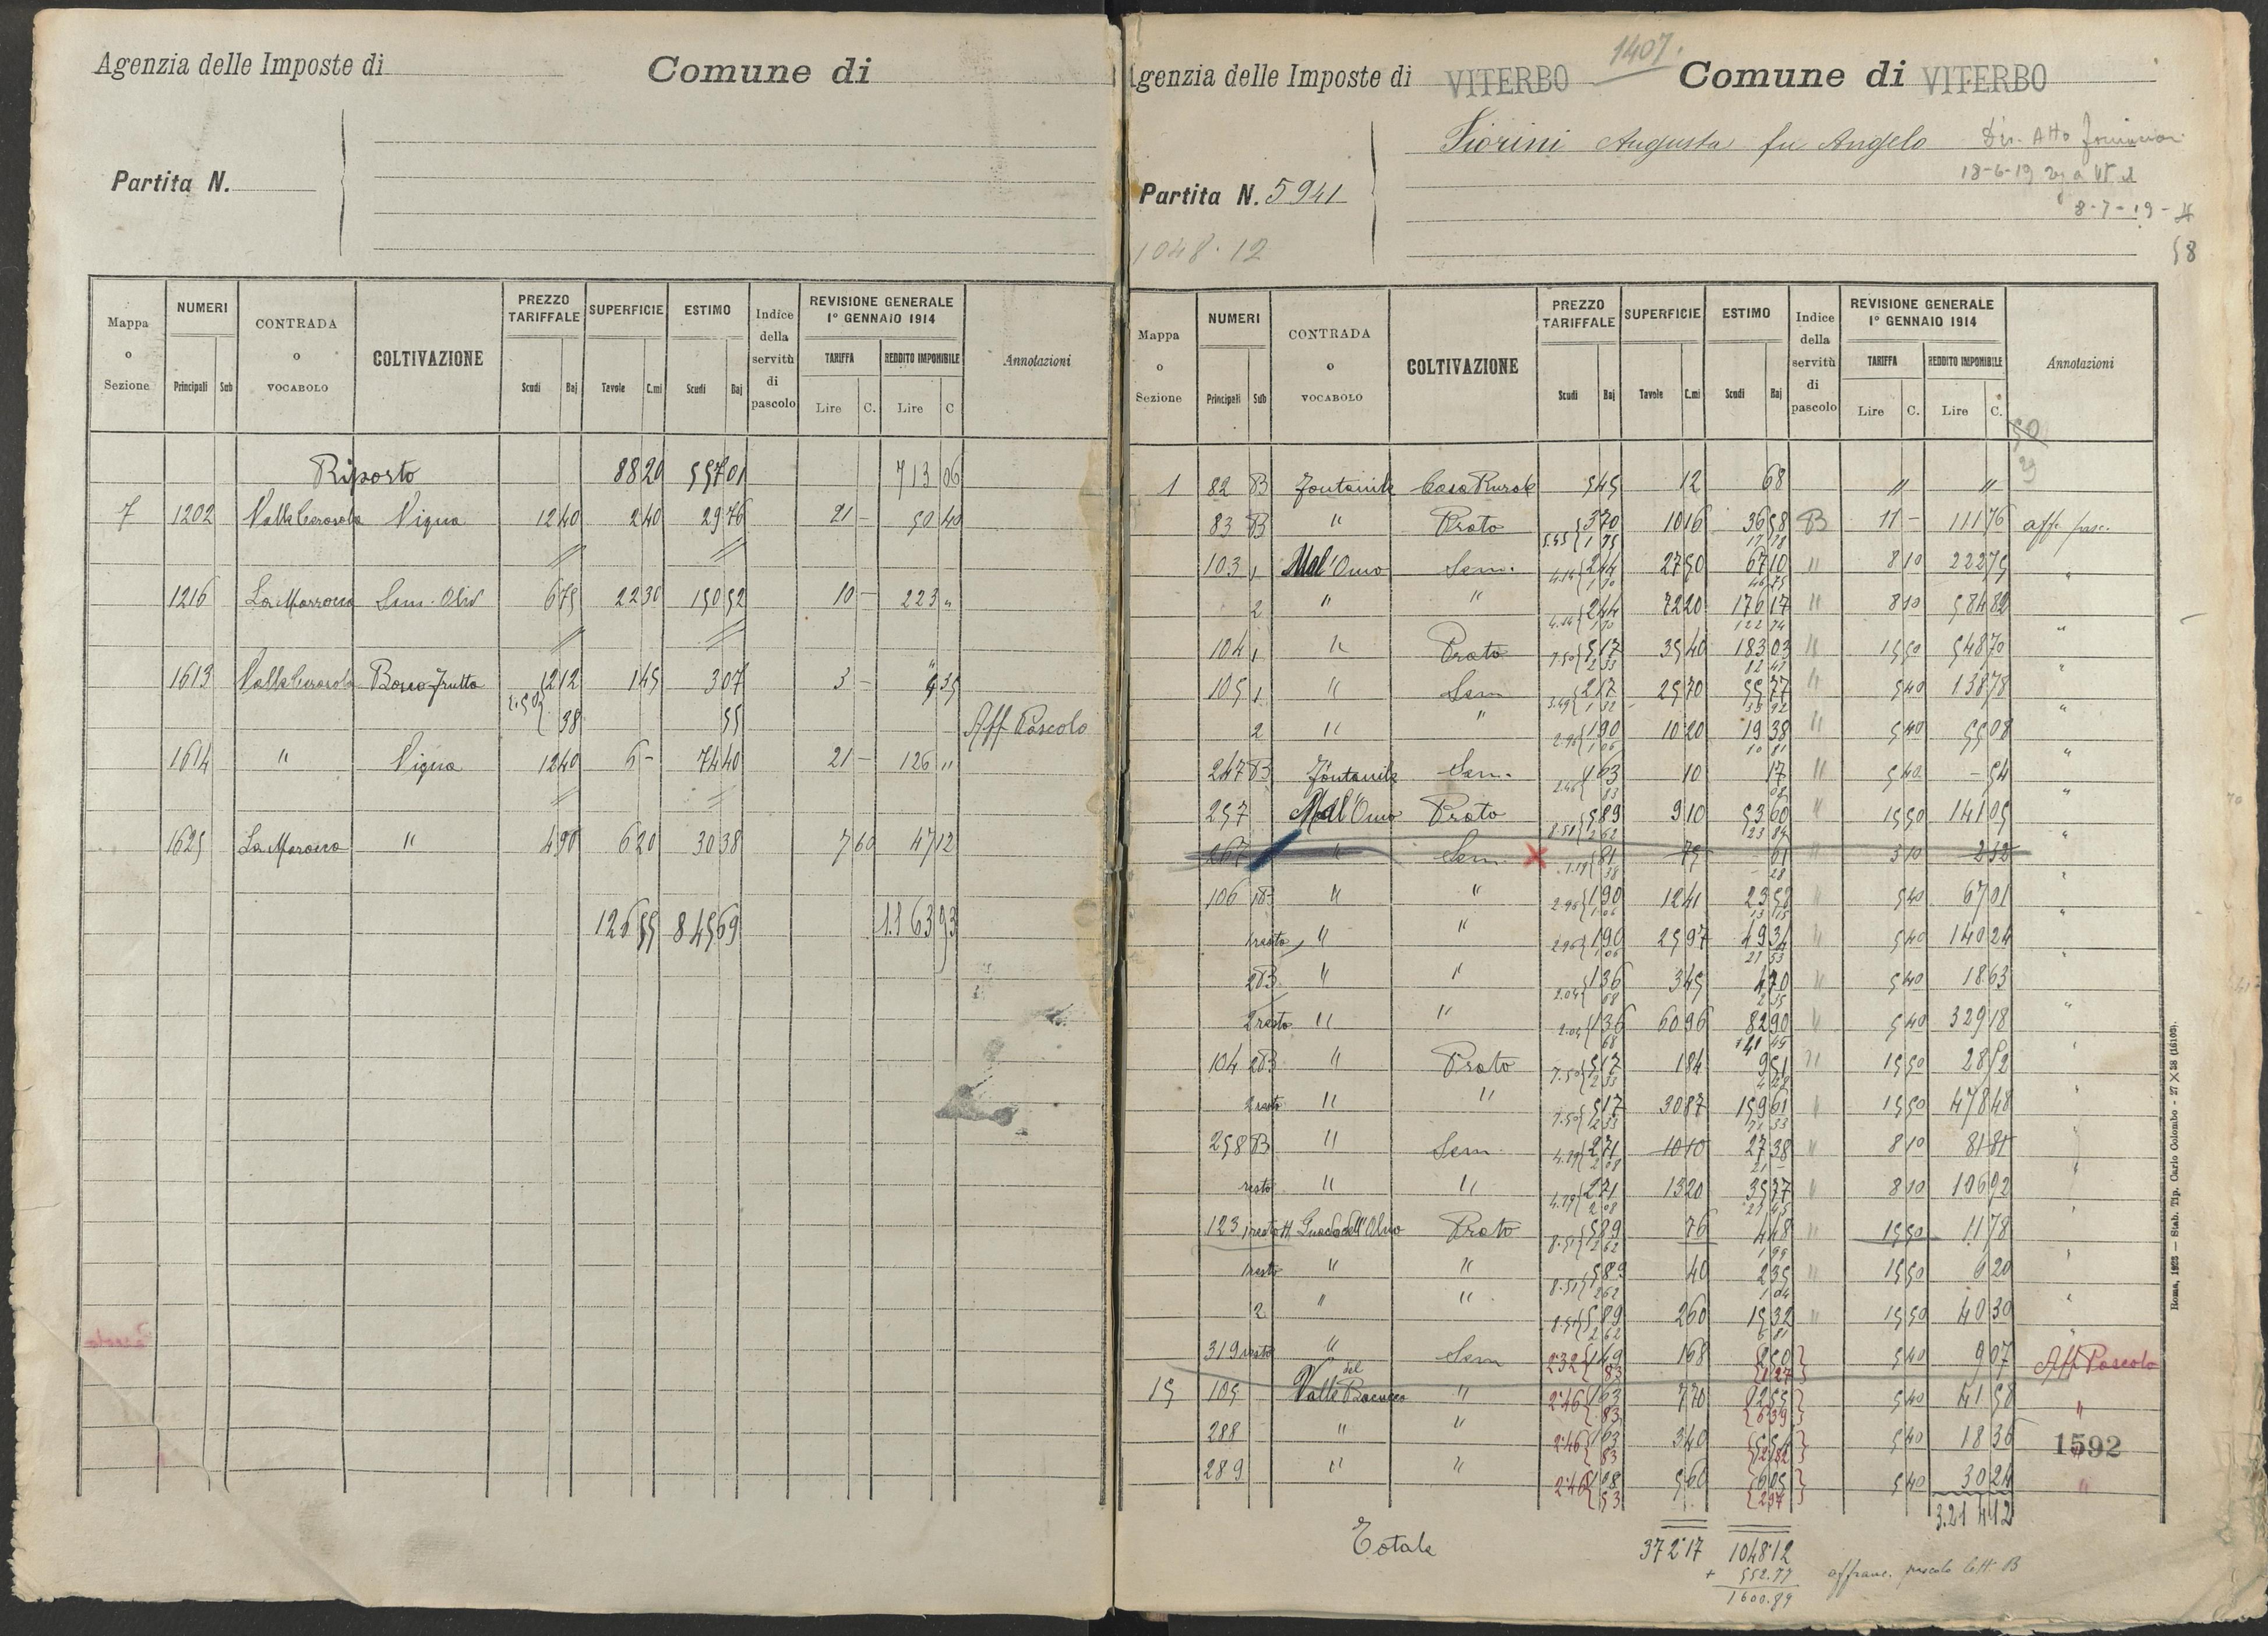 Agenzia delle Imposte di
Comune di
Partita N.
Mappa o Sezione
NUMERI
Principali Sub
CONTRADA o VOCABOLO
COLTIVAZIONE
PREZZO TARIFFALE
Scudi Baj
SUPERFICIE
Tavole C.mi
ESTIMO
Scudi Baj
Indice della servitù di pascolo
REVISIONE GENERALE 1° GENNAIO 1914
TARIFFA
Lire C.
REDDITO IMPONIBILE
Lire C
Annotazioni
Riporto 88 20 557 01 713 06
7 1202 Valle Cerasola Vigna 12 40 2 40 29 76 21 - 50 40
1216 La Marrocca Sem. Oliv 6 75 22 30 150 52 10 - 223 "
1613 Valle Cerasola Bosco frutto 2 12 1 45 3 07 3 - 4 35
2.50 38 55 Aff Pascolo
1614 " Vigna 12 40 6 - 74 40 21 - 126 "
1625 La Marocca " 4 90 6 20 30 38 7 60 47 12
126 55 845 69 1163 93
Agenzia delle Imposte di VITERBO
1407.
Comune di VITERBO
Fiorini Augusta fu Angelo
18-6-19
8-7-19
58
Partita N. 5941
1048.12
Mappa o Sezione
NUMERI
Principali Sub
CONTRADA o VOCABOLO
COLTIVAZIONE
PREZZO TARIFFALE
Scudi Baj
SUPERFICIE
Tavole C.mi
ESTIMO
Scudi Baj
Indice della servitù di pascolo
REVISIONE GENERALE 1° GENNAIO 1914
TARIFFA
Lire C.
REDDITO IMPONIBILE
Lire C.
Annotazioni
1 82 B Fontanile Casa Rurale 5 45 12 68 " "
83 B " Prato 5.45 3 70 1 75 10 16 36 58 17 78 B 11 - 111 76 aff. pasc.
103 1 Mal'Omo Sem. 4.14 2 44 1 70 27 50 67 10 46 75 " 8 10 222 75 "
2 " " 4.14 2 44 1 70 72 20 176 17 122 74 " 8 10 584 82 "
104 1 " Prato 7.50 5 17 2 33 35 40 183 03 " 15 50 548 70 "
105 1 " Sem 3.49 2 17 1 32 25 70 55 77 33 92 " 5 40 138 78 "
2 " " 2.96 1 90 1 06 10 20 19 38 10 81 " 5 40 55 08 "
247 B Fontanile Sem. 2.46 1 63 83 10 17 08 " 5 40 - 54 "
257 Mal'Omo Prato 8.51 5 89 2 62 9 10 53 60 23 84 " 15 50 141 05 "
267 " Sem 1.19 81 38 75 61 28 " 3 10 2 32 "
106 1B " " 2.96 1 90 1 06 12 41 23 58 13 15 " 5 40 67 01 "
1 resto " " 2.96 1 90 1 06 25 97 49 34 27 53 " 5 40 140 24 "
2B " " 2.04 1 36 68 3 45 4 70 2 35 " 5 40 18 63 "
2 resto " " 2.04 1 36 68 60 96 82 90 41 45 " 5 40 329 18 "
104 2B " Prato 7.50 5 17 2 33 1 84 9 51 4 28 " 15 50 28 52 "
2 resto " " 7.50 5 17 2 33 30 87 159 61 " 15 50 478 48 "
258 B " Sem. 4.79 2 71 2 08 10 10 27 38 21 - " 8 10 81 81
resto " " 4.79 2 71 2 08 13 20 35 77 27 45 " 8 10 106 92
123 1 resto A Guado dell'Olmo Prato 8.51 5 89 2 62 76 4 48 1 99 " 15 50 11 78
1 resto " " 8.51 5 89 2 62 40 2 35 1 04 " 15 50 6 20
2 " " 8.51 5 89 2 62 2 60 15 32 6 81 " 15 50 40 30
319 resto " Sem 2 32 1 49 83 1 68 2 50 1 27 5 40 9 07 Aff Pascolo
15 105 Valle del Bacucco " 2 46 1 63 83 7 70 12 55 6 39 5 40 41 58 "
288 " " 2 46 1 63 83 3 40 5 54 2 82 5 40 18 36 1592
289 " " 2 46 1 08 53 5 60 6 05 2 97 5 40 30 24 "
3.214 12
Totale 372 17 1048 12
+ 552.77 affranc. pascolo lett. B
1600.89
Roma, 1923 — Stab. Tip. Carlo Colombo - 27 X 38 (16103).